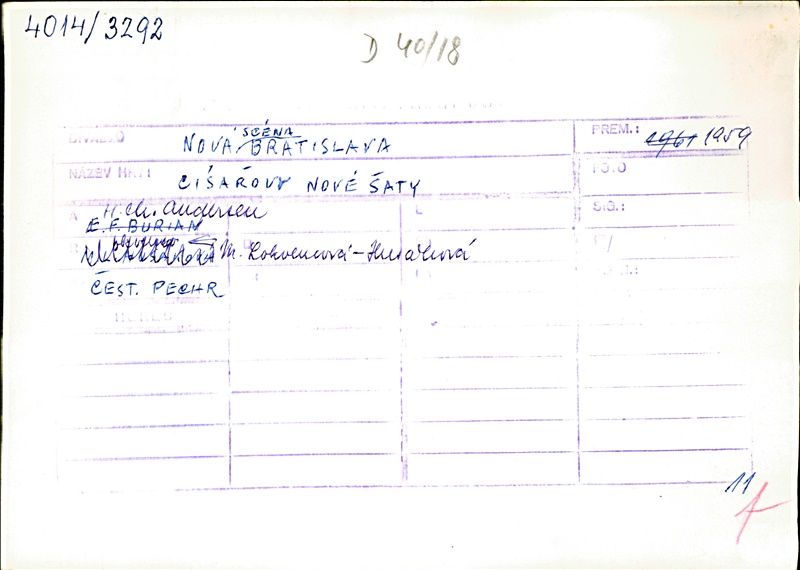 4014/3292
D 40/18
DIVADLO NOVÁ SCÉNA BRATISLAVA PREM.: 1961 1959
NÁZEV HRY: CÍSAŘOVY NOVÉ ŠATY
A H. Ch. Andersen L SIG.:
E. F. BURIAN
M. Lokvencová-Husáková
ČEST. PECHR
11